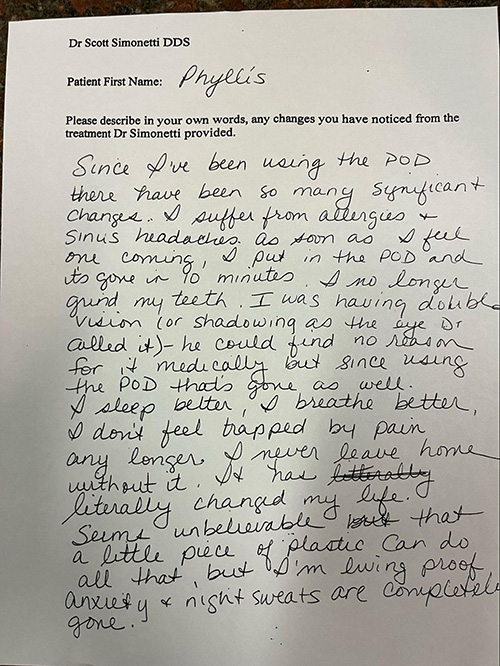 Dr Scott Simonetti DDS
Patient First Name: Phyllis
Please describe in your own words, any changes you have noticed from the
treatment Dr Simonetti provided.
Since I've been using the POD
there have been so many significant
changes. I suffer from allergies +
sinus headaches. as soon as I feel
one coming, I put in the POD and
it's gone in 10 minutes. I no longer
grind my teeth. I was having double
vision (or shadowing as the eye Dr
called it) - he could find no reason
for it medically but since using
the POD that's gone as well.
I sleep better, I breathe better,
I don't feel trapped by pain
any longer. I never leave home
without it. It has litterally
literally changed my life.
Seems unbelievable but that
a little piece of plastic can do
all that, but I'm living proof
anxiety + night sweats are completely
gone.